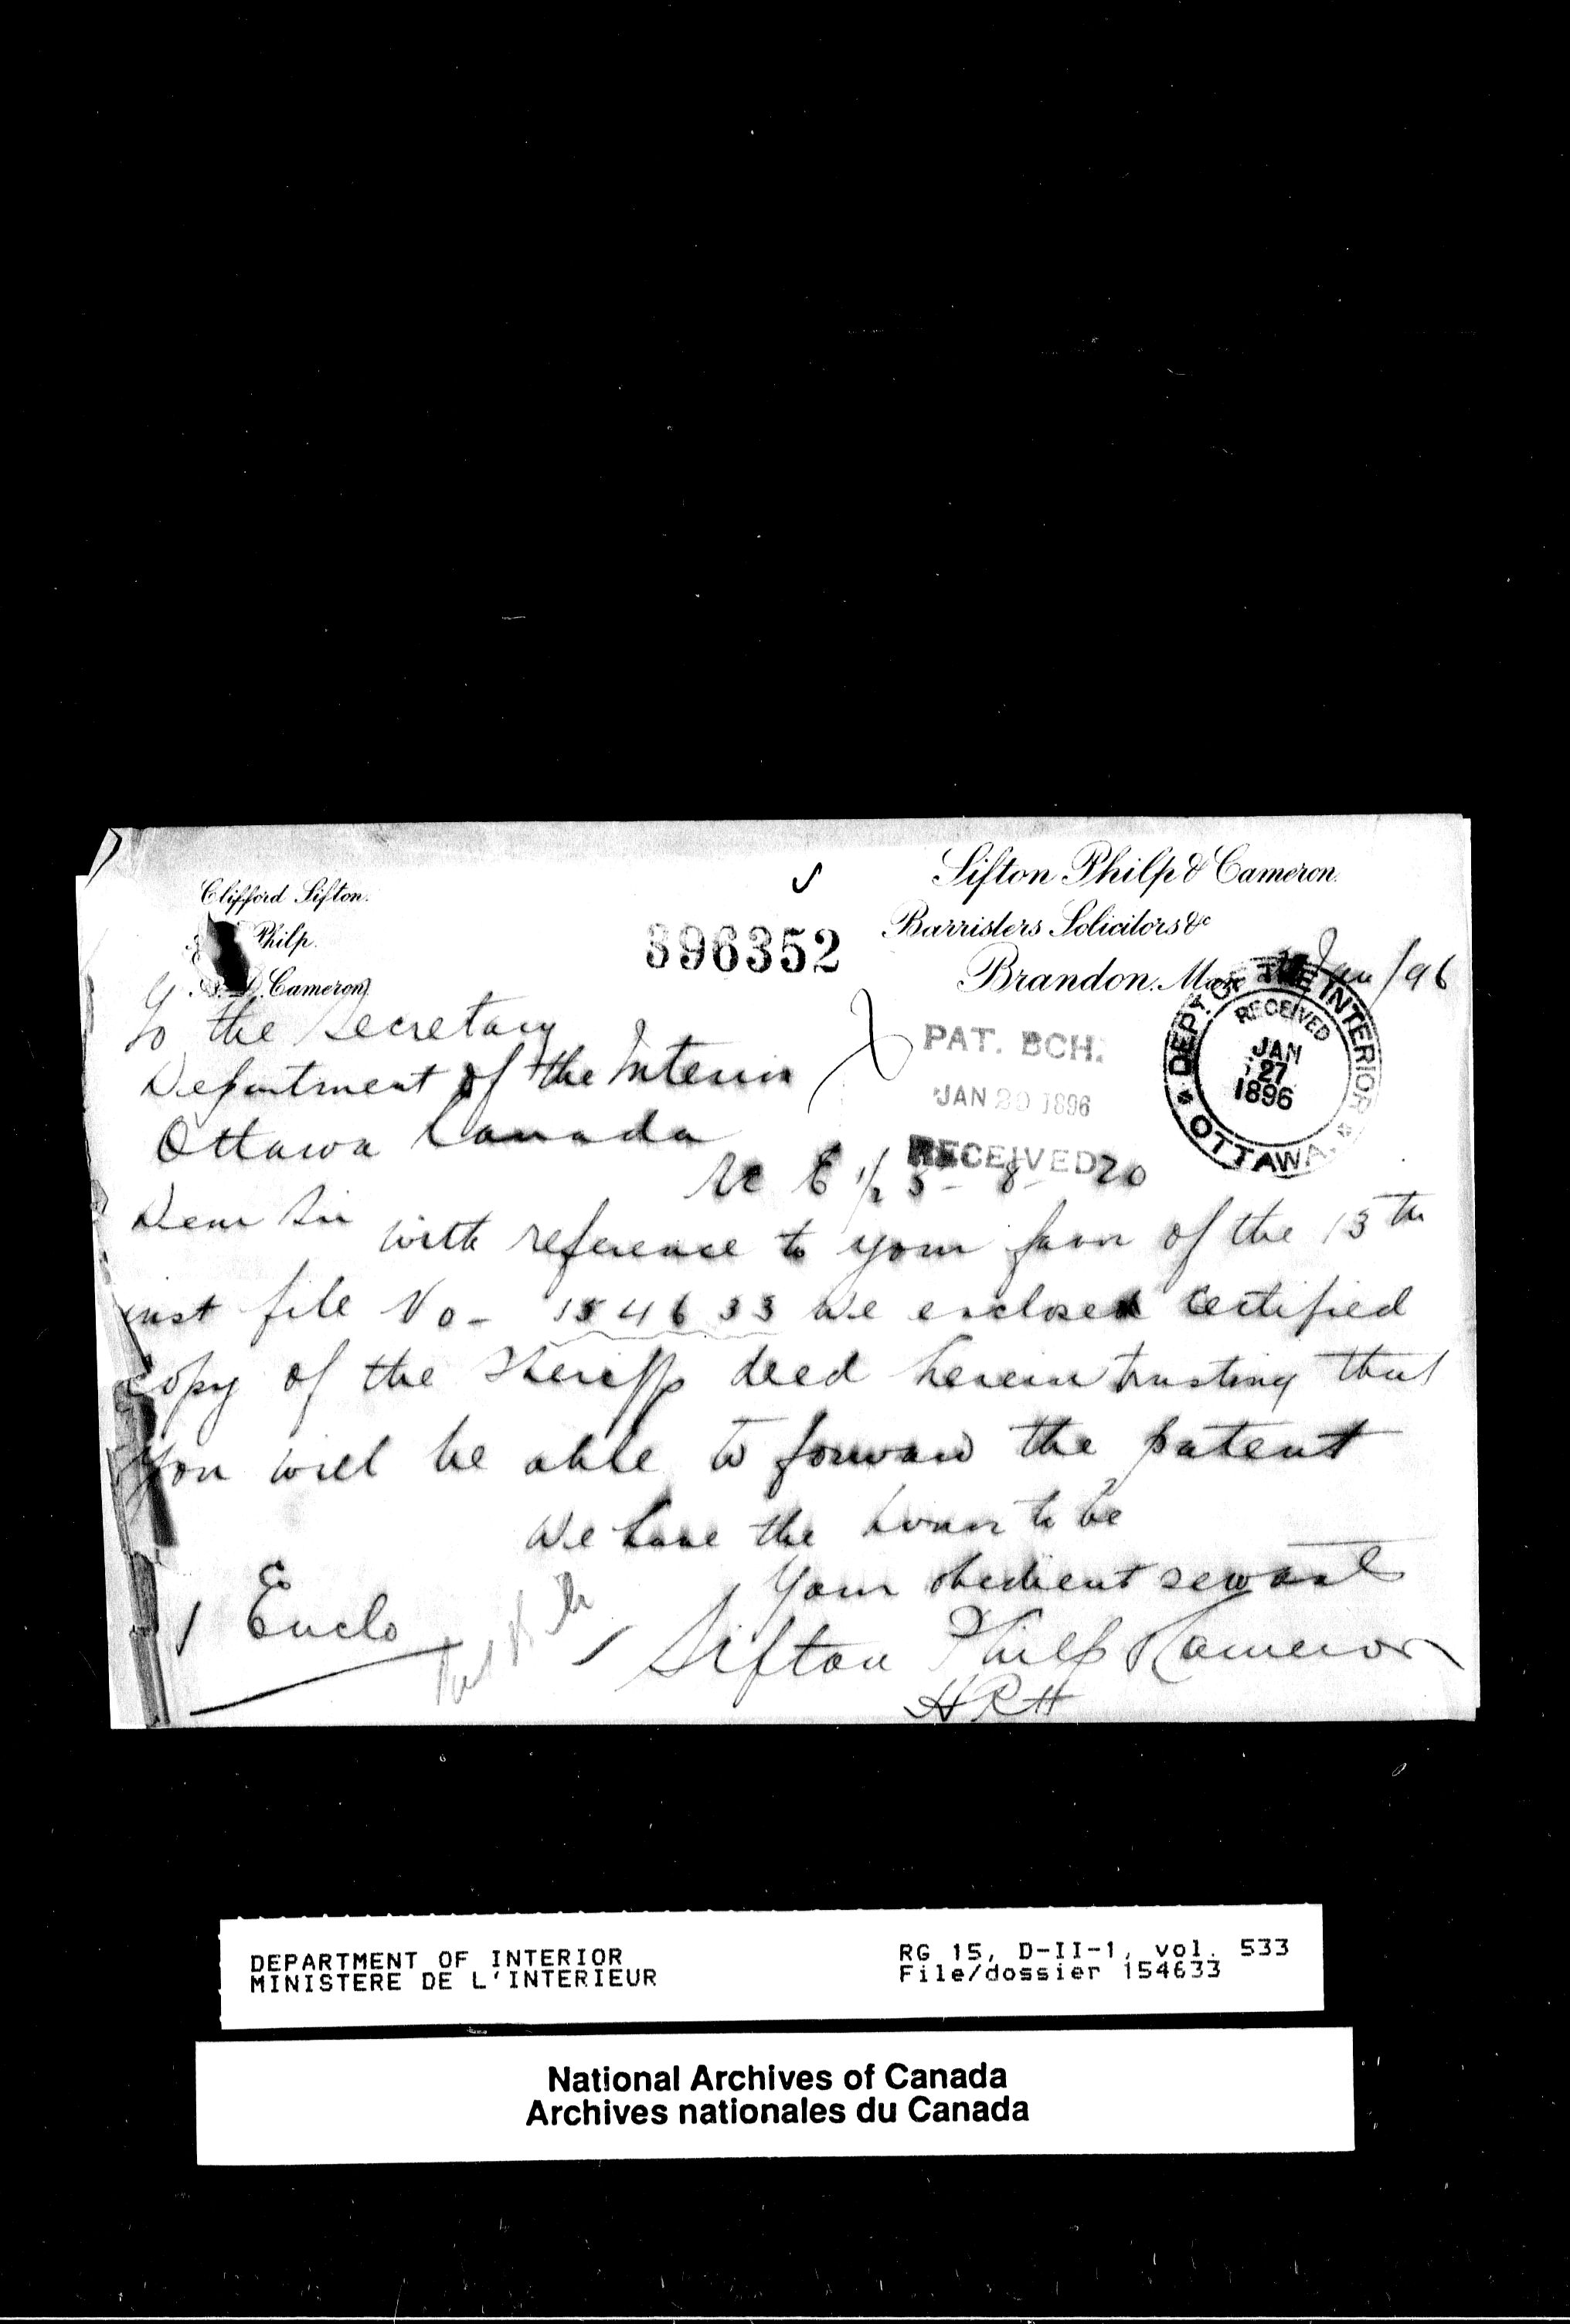 Clifford Sifton.
Philp.
Cameron
396352
Sifton Philp & Cameron.
Barristers Solicitors &c
Brandon. Man Jan/96
To the Secretary
Department of the Interior
Ottawa Canada
PAT. BCH.
JAN 1896
RECEIVED
DEPT. OF THE INTERIOR
RECEIVED
JAN
27
1896
OTTAWA
Re E 1/2 5 - 8 - 20
Dear Sir
with reference to your favor of the 15th
inst file No - 154633 we enclose certified
copy of the Sheriffs deed herein trusting that
you will be able to forward the patent
We have the honor to be
Your obedient servants
Sifton Philp & Cameron
HRH
1 Enclo
DEPARTMENT OF INTERIOR
MINISTERE DE L'INTERIEUR
RG 15, D-II-1, vol. 533
File/dossier 154633
National Archives of Canada
Archives nationales du Canada